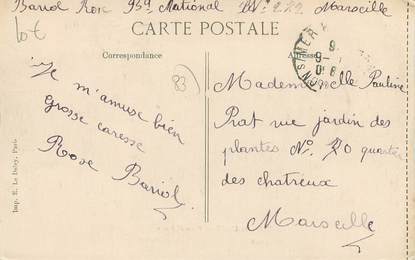 Bariol Rose Bd National N° 222 Marseille
lot
CARTE POSTALE
Correspondance
83
Je m'amuse bien
grosse caresse
Rose Bariol
Imp. E. Le Deley, Paris
Mademoiselle Pauline
Prat rue jardin des
plantes N° 20 quartier
des chatreux
Marseille